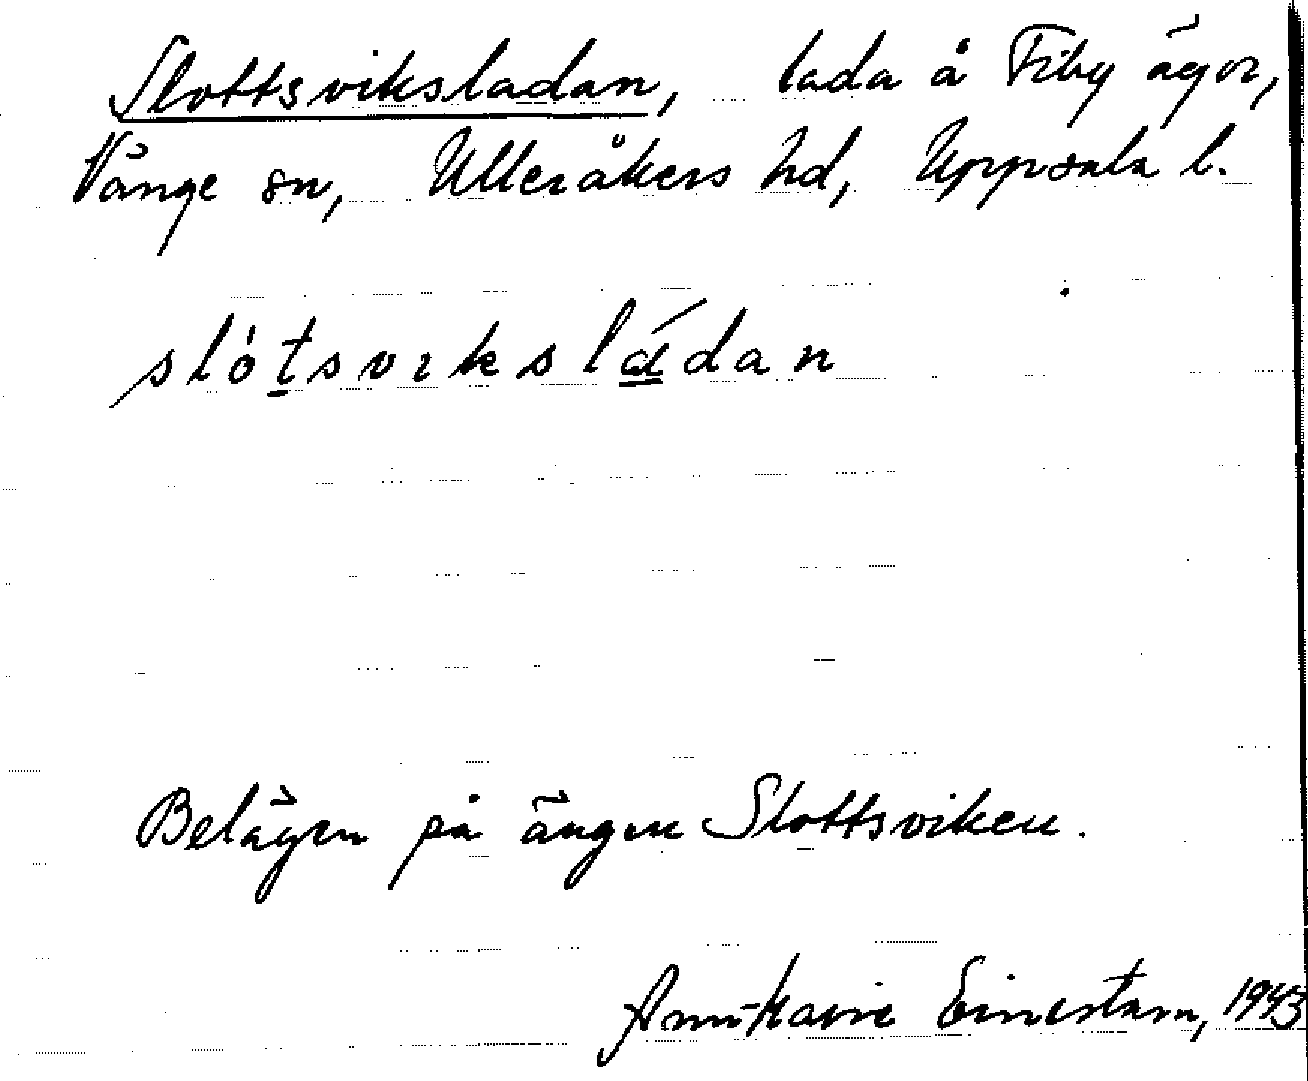 Slottsviksladan, lada å Fiby ägor,
Vänge sn, Ulleråkers hd, Uppsala l.
slótsviksládan
Belägen på ängen Slottsviken.
Ann-Karin 1943